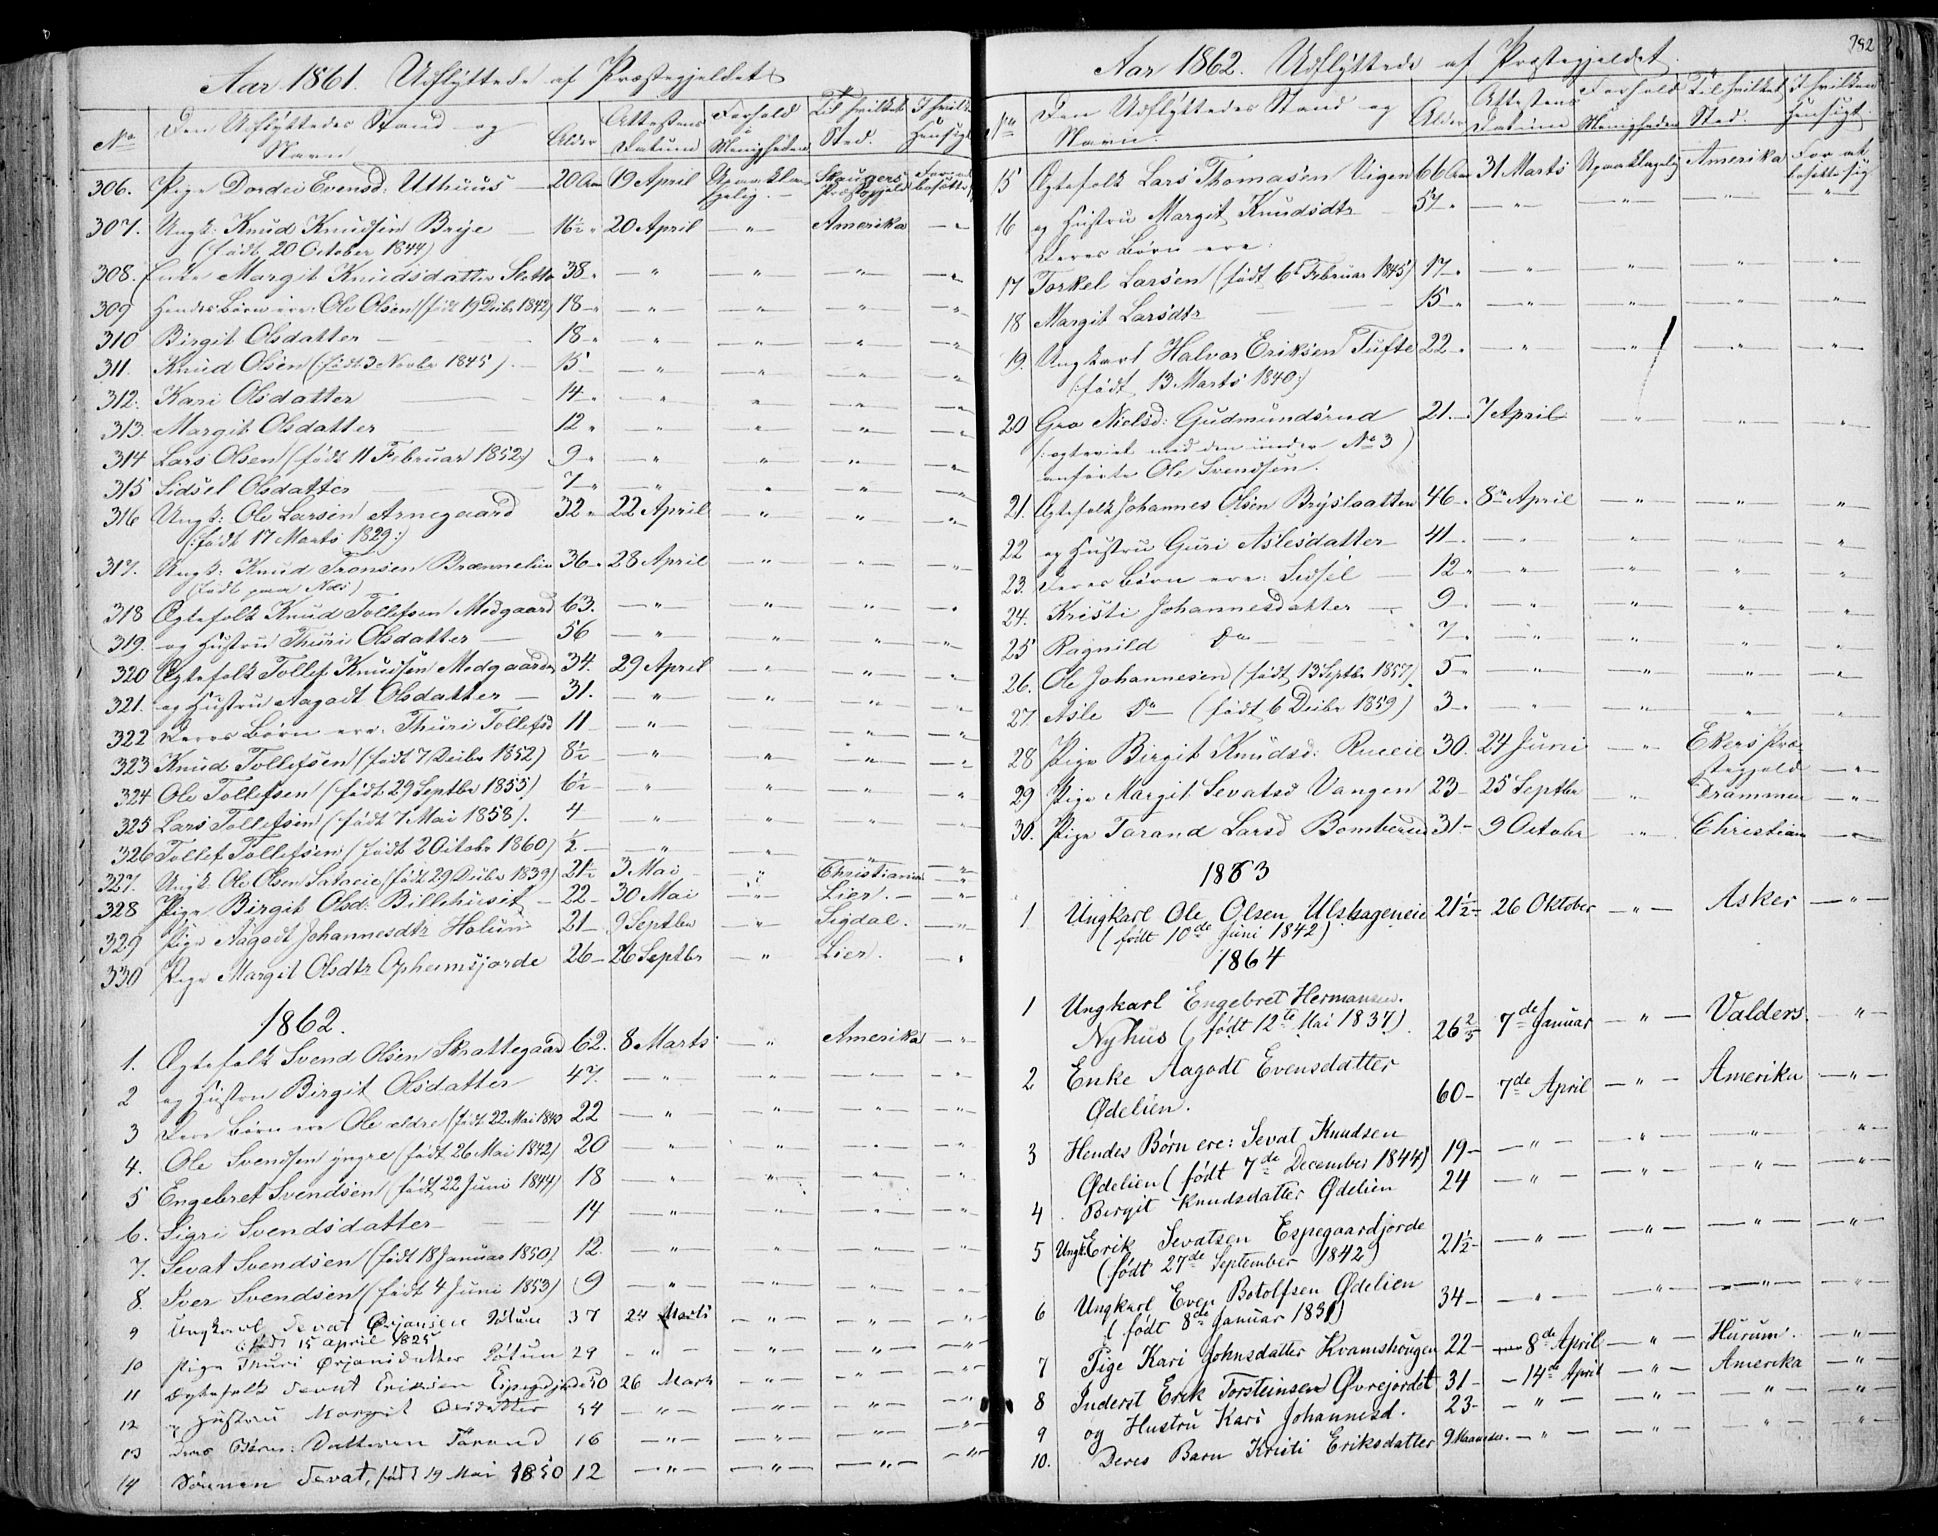 Aar 1861. Udflyttede af Præstegjeldet
No Den Udflyttedes Stand og Navn Alder Attestens Datum Forhold Menigheden Til hvilket Sted. I hvilken Hensigt
306. Pige Dordei Evensd: Uthuus 20 Aar 19 April Upaaklagelig. Præstegjeld
307. Ungk: Knud Knudsen Brye 16½ " 20 April — " — Amerika — " —
(født 20 October 1844)
308. Enke Margit Knudsdatter 38 " — " — " — " — " —
309 Hendes Børn ere: Ole Olsen (født 19 Decbr 1842) 18 — " — " — " — " —
310 Birgit Olsdatter — 18 — " — " — " — " —
311. Knud Olsen (født 3 Novbr 1845). — 15 — " — " — " — " —
312. Kari Olsdatter — 14 " — " — " — " — " —
313. Margit Olsdatter 12 " — " — " — " — " —
314 Lars Olsen (født 11 Februar 1852) 9 " — " — " — " — " —
315 Sidsel Olsdatter 7 " — " — " — " — " —
316 Ungk: Ole Larsen Arnegaard 32 " 22 April — " — " — " —
(: født 17 Marts 1829 :)
317. Ungk: Knud Tronsen 36 " 28 April — " — " — " —
(født paa Næs)
318 Ægtefolk Knud Tollefsen Medgaard 63. — " — " — " — " —
319. og Hustru Thuri Olsdatter — 56 — " — " — " — " —
320 Ægtefolk Tollef Knudsen Medgaard 34. 29 April — " — " — " —
321. og Hustru Aagodt Olsdatter — 31. — " — " — " — " —
322 Deres Børn ere: Thuri Tollefsd 11 — " — " — " — " —
323 Knud Tollefsen (født 7 Decbr 1852) 8½ — " — " — " — " —
324 Ole Tollefsen (født 29 Septbr 1855) 6½ — " — " — " — " —
325 Lars Tollefsen (født 7 Mai 1858). 4 — " — " — " — " —
326 Tollef Tollefsen (født 2 Octobr 1860) ½ — " — " — " — " —
327. Ungk: Ole Olsen (født 29 Decbr 1839) 21½ 3 Mai — " — Christiania — " —
328 Pige Birgit Olsd: — 22 — 30 Mai — " — Lier. — " —
329 Pige Aagodt Johannesdtr 21 — 9 Septbr — " — Sigdal. — " —
330 Pige Margit Olsdtr Opheimsjorde 26 — 26 Septbr — " — Lier. — " —
1862.
1. Ægtefolk Svend Olsen Skrattegaard 62. 8 Marts — " — Amerika — " —
2 og Hustru Birgit Olsdatter 47. — " — " — " — " —
3 Dere Børn ere Ole ældre (født 22 Mai 1840 22 — " — " — " — " —
4. Ole Svendsen yngre (født 26 Mai 1842) 20 — " — " — " — " —
5 Engebret Svendsen (født 22 Juni 1844) 18 — " — " — " — " —
6. Sigri Svendsdatter — 14 — " — " — " — " —
7. Sevat Svendsen (født 18 Januar 1850) 12. — " — " — " — " —
8. Iver Svendsen (født 4 Juni 1853) 9 — " — " — " — " —
9 Ungkarl Sevat Ørjansen 37 24 Marts — " — " — " —
født 15 April 1825
10 Pige Thuri Ørjansdatter 29 — " — " — " — " —
11 Ægtefolk Sevat Eriksen 50 26 Marts — " — " — " —
12 og Hustru Margit Olsdatter 54 — " — " — " — " —
13 Deres Børn: Datteren Tårand 16 — " — " — " — " —
14 Sønnen Sevat, født 19 Mai 1850 12 — " — " — " — " —
Aar 1862. Udflyttede af Præstegjeldet. 782
No Den Udflyttedes Stand og Navn. Alder Attestens Datum Forhold Menigheden Til hvilket Sted. I hvilken Hensigt
15 Ægtefolk Lars Thomasen Vigen 66 Aar 31 Marts Upaaklagelig Amerika For at bosætte sig
16 og Hustru Margit Knudsdtr — 57 " — " — " — " — " —
Deres Børn ere:
17 Torkel Larsen (født 6te Februar 1845) 17 " — " — " — " — " —
18 Margit Larsdtr — 15 " — " — " — " — " —
19. Ungkarl Halvor Eriksen Tufte 22 " — " — " — " — " —
(født 13 Marts 1840:)
20 Gro Nielsd: Gudmundsrud 21. — 7 April — " — " — " —
(: egteviet med den under No 3)
anførte Ole Svendsen.
21. Ægtefolk Johannes Olsen Bryslaatten 46 " 8de April — " — " — " —
22 og Hustru Guri Aslesdatter — 41 — " — " — " — " —
23. Deres Børn ere: Sidsel — 12 " — " — " — " — " —
24. Kristi Johannesdatter — 9 — " — " — " — " —
25 Ragnild Do — 7 — " — " — " — " —
26. Ole Johannesen (født 13 Septbr 1857). 5 " — " — " — " — " —
27 Asle Do — (født 6 Decbr 1859) 3 " — " — " — " — " —
28 Pige Birgit Knudsd: 30. 24 Juni — " — Ekers Præstegjeld — " —
29 Pige Margit Sevatsd Vangen 23 — 25 Septbr — " — Drammen — " —
30. Pige Tarand Larsd Bomberud 31 — 9 Octobr — " — Christian — " —
1863
1 Ungkarl Ole Olsen Ulshageneie 21½ — 26 Oktober — " — Asker — " —
(født 10de Juni 1842)
1864
1 Ungkarl Engebret Hermansen.
Nyhus (født 12te Mai 1837) 26⅔ 7de Januar — " — Valders. — " —
2 Enke Aagodt Evensdatter
Ødelien. 60 — 7de April — " — Amerika — " —
3 Hendes Børn ere: Sevat Knudsen 19 — — " — " — " — " —
Ødelien (født 7de December 1844)
4 Birgit Knudsdatter Ødelien 24 — " — " — " — " —
5 Ungk: Erik Sevatsen Espegaardjorde 21½ — — " — " — " — " —
(født 27de September 1842)
6 Ungkarl Even Botolfsen Ødelien 34 — — " — " — " — " —
(født 8de Januar 1830)
7 Pige Kari Johnsdatter Kvamshougen 22 — 8de April — " — Hurum. — " —
8 Inderst Erik Torsteinsen Øvrejordet 31 — 14de April — " — Amerika — " —
9 og Hustru Kari Johannesd. 23 — — " — " — " — " —
10. Deres Barn Kristi Eriksdatter 9 Maaneder. — " — " — " — " —